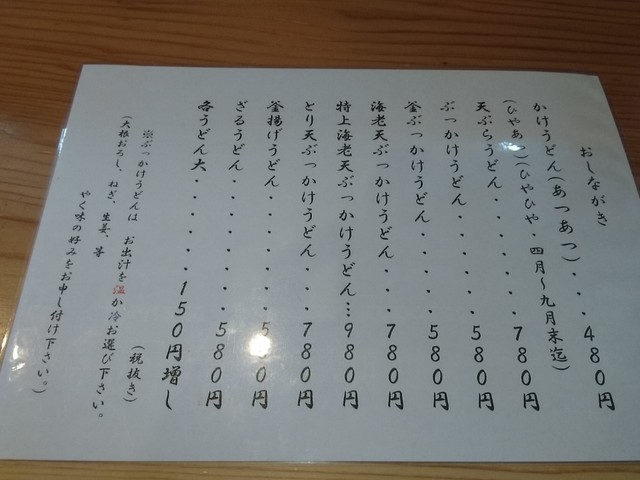 おしながき
かけうどん(あつあつ)・・・480円
(ひやあつ)(ひやひや・四月〜九月末迄)
天ぷらうどん・・・・・780円
ぶっかけうどん・・・・・580円
釜ぶっかけうどん・・・・580円
海老天ぶっかけうどん・・・780円
特上海老天ぶっかけうどん…980円
とり天ぶっかけうどん・・・780円
釜揚げうどん・・・・・・5 0円
ざるうどん・・・・・・・580円
各うどん大・・・・・・150円増し
(税抜き)
※ぶっかけうどんは お出汁を温か冷お選び下さい。
(大根おろし、ねぎ、生姜、等
やく味の好みをお申し付け下さい。)